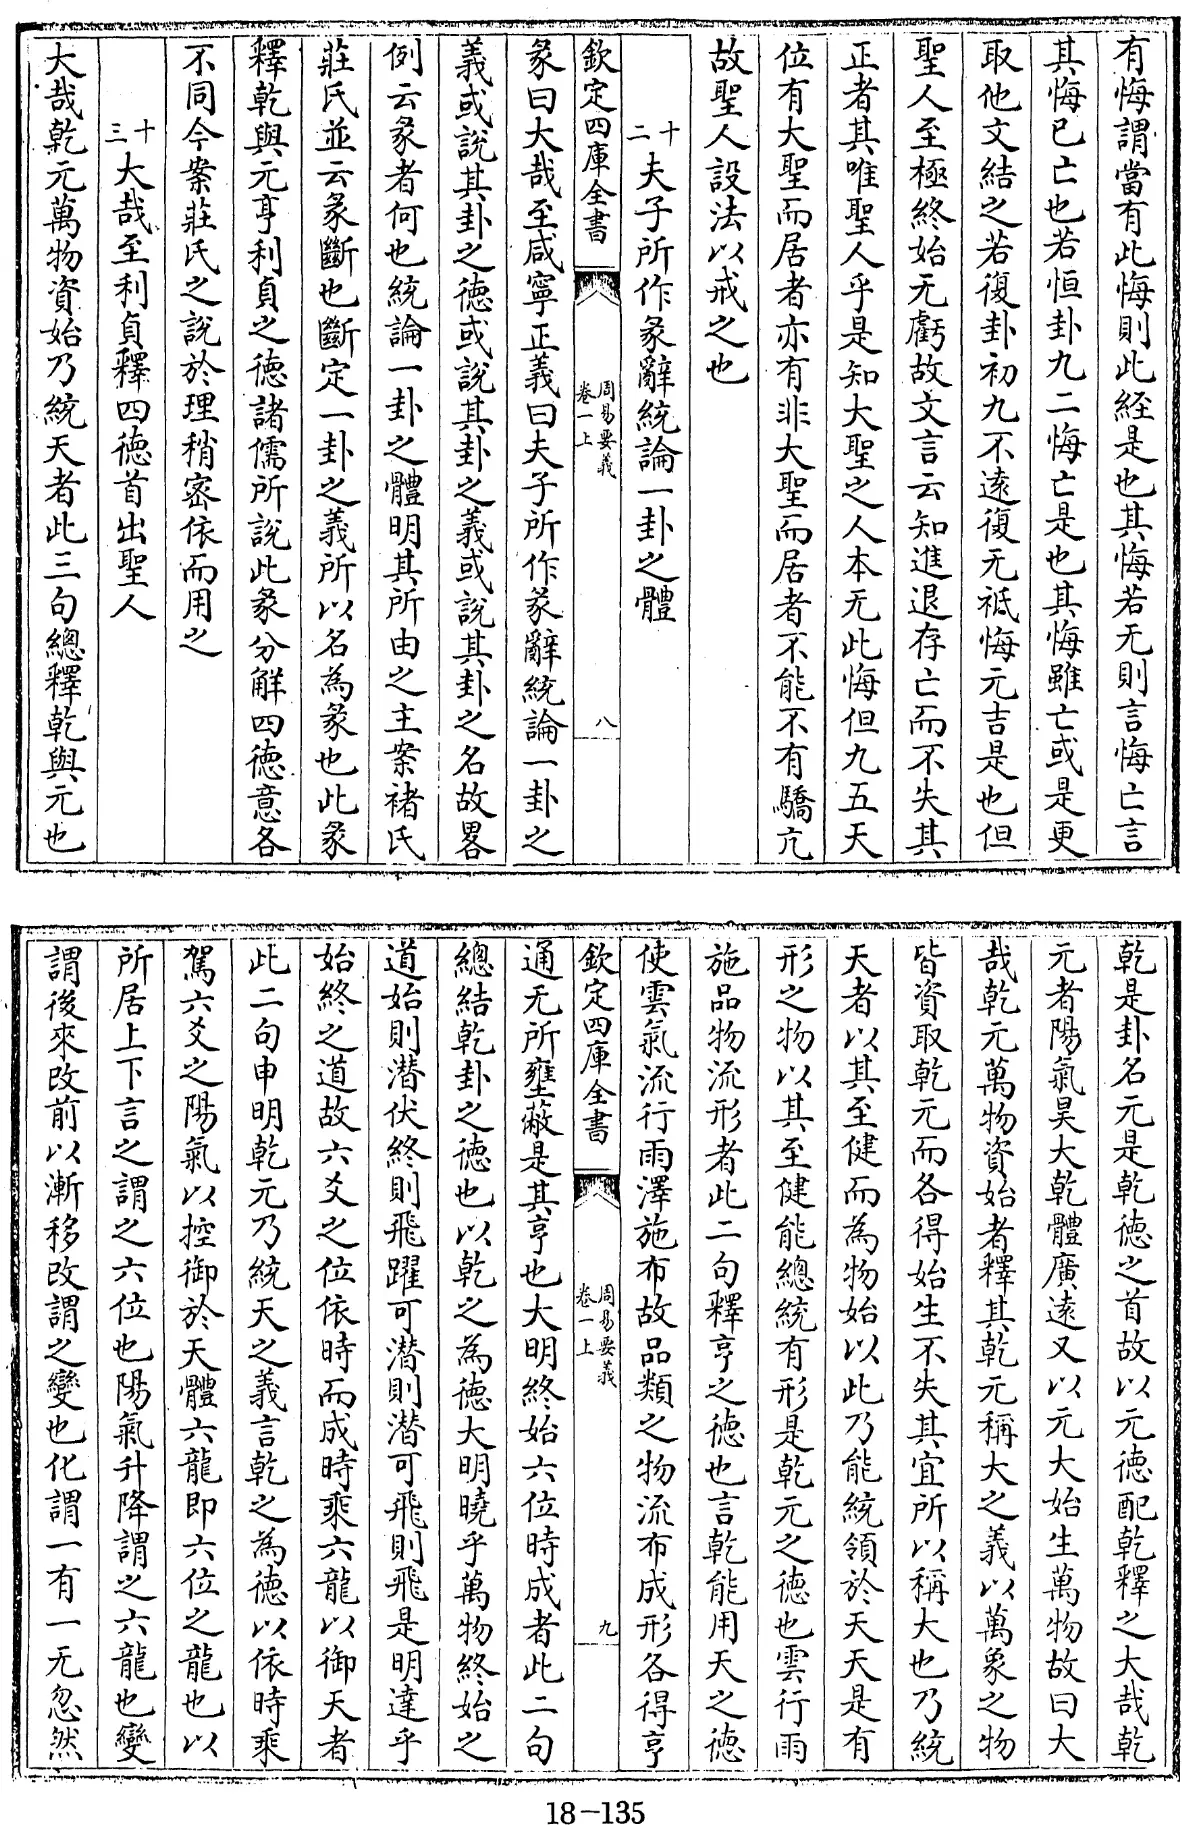 有悔謂當有此悔則此經是也其悔若无則言悔亡言
其悔已亡也若恒卦九二悔亡是也其悔雖亡或是更
取他文結之若復卦初九不遠復无祗悔元吉是也但
聖人至極終始无虧故文言云知進退存亡而不失其
正者其唯聖人乎是知大聖之人本无此悔但九五天
位有大聖而居者亦有非大聖而居者不能不有驕亢
故聖人設法以戒之也
十二夫子所作彖辭統論一卦之體
欽定四庫全書 周易要義 卷一上 八
彖曰大哉至咸寧正義曰夫子所作彖辭統論一卦之
義或說其卦之德或說其卦之義或說其卦之名故畧
例云彖者何也統論一卦之體明其所由之主案褚氏
莊氏並云彖斷也斷定一卦之義所以名為彖也此彖
釋乾與元亨利貞之德諸儒所說此彖分解四德意各
不同今案莊氏之說於理稍密依而用之
十三大哉至利貞釋四德首出聖人
大哉乾元萬物資始乃統天者此三句總釋乾與元也
乾是卦名元是乾德之首故以元德配乾釋之大哉乾
元者陽氣昊大乾體廣遠又以元大始生萬物故曰大
哉乾元萬物資始者釋其乾元稱大之義以萬象之物
皆資取乾元而各得始生不失其宜所以稱大也乃統
天者以其至健而為物始以此乃能統領於天天是有
形之物以其至健能總統有形是乾元之德也雲行雨
施品物流形者此二句釋亨之德也言乾能用天之德
使雲氣流行雨澤施布故品類之物流布成形各得亨
欽定四庫全書 周易要義 卷一上 九
通无所壅蔽是其亨也大明終始六位時成者此二句
總結乾卦之德也以乾之為德大明曉乎萬物終始之
道始則潛伏終則飛躍可潛則潛可飛則飛是明達乎
始終之道故六爻之位依時而成時乘六龍以御天者
此二句申明乾元乃統天之義言乾之為德以依時乘
駕六爻之陽氣以控御於天體六龍即六位之龍也以
所居上下言之謂之六位也陽氣升降謂之六龍也變
謂後來改前以漸移改謂之變也化謂一有一无忽然
18-135